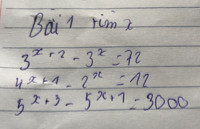 Bài 1 tìm x
3^x+2 - 3^x = 72
4^x+1 - 2^x = 12
5^x+3 - 5^x+1 = 3000